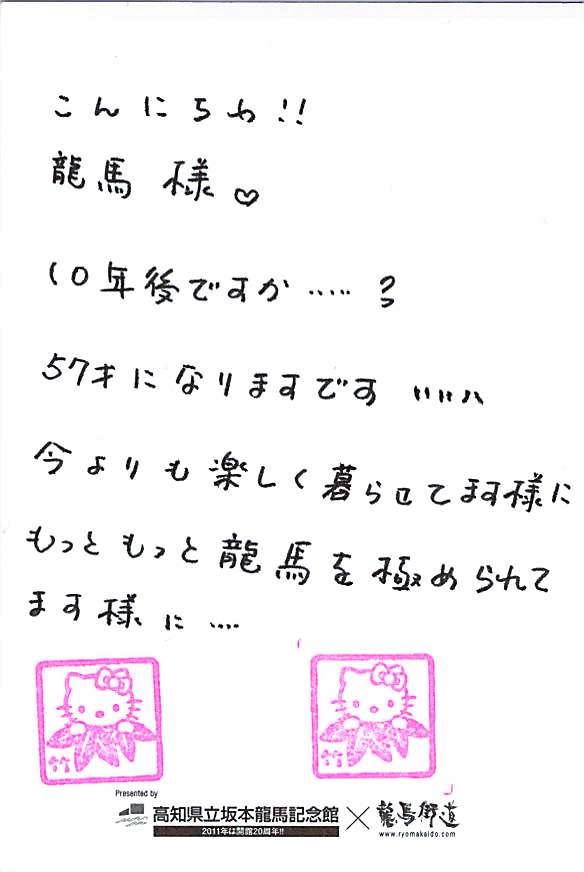 こんにちわ!!
龍馬 様♡
10年後ですか……?
57才になりますです……
今よりも楽しく暮らせてます様に
もっともっと龍馬を極められて
ます様に….
竹
竹
Presented by
高知県立坂本龍馬記念館 × 龍馬街道
2011年は開館20周年!!
www.ryomakaido.com